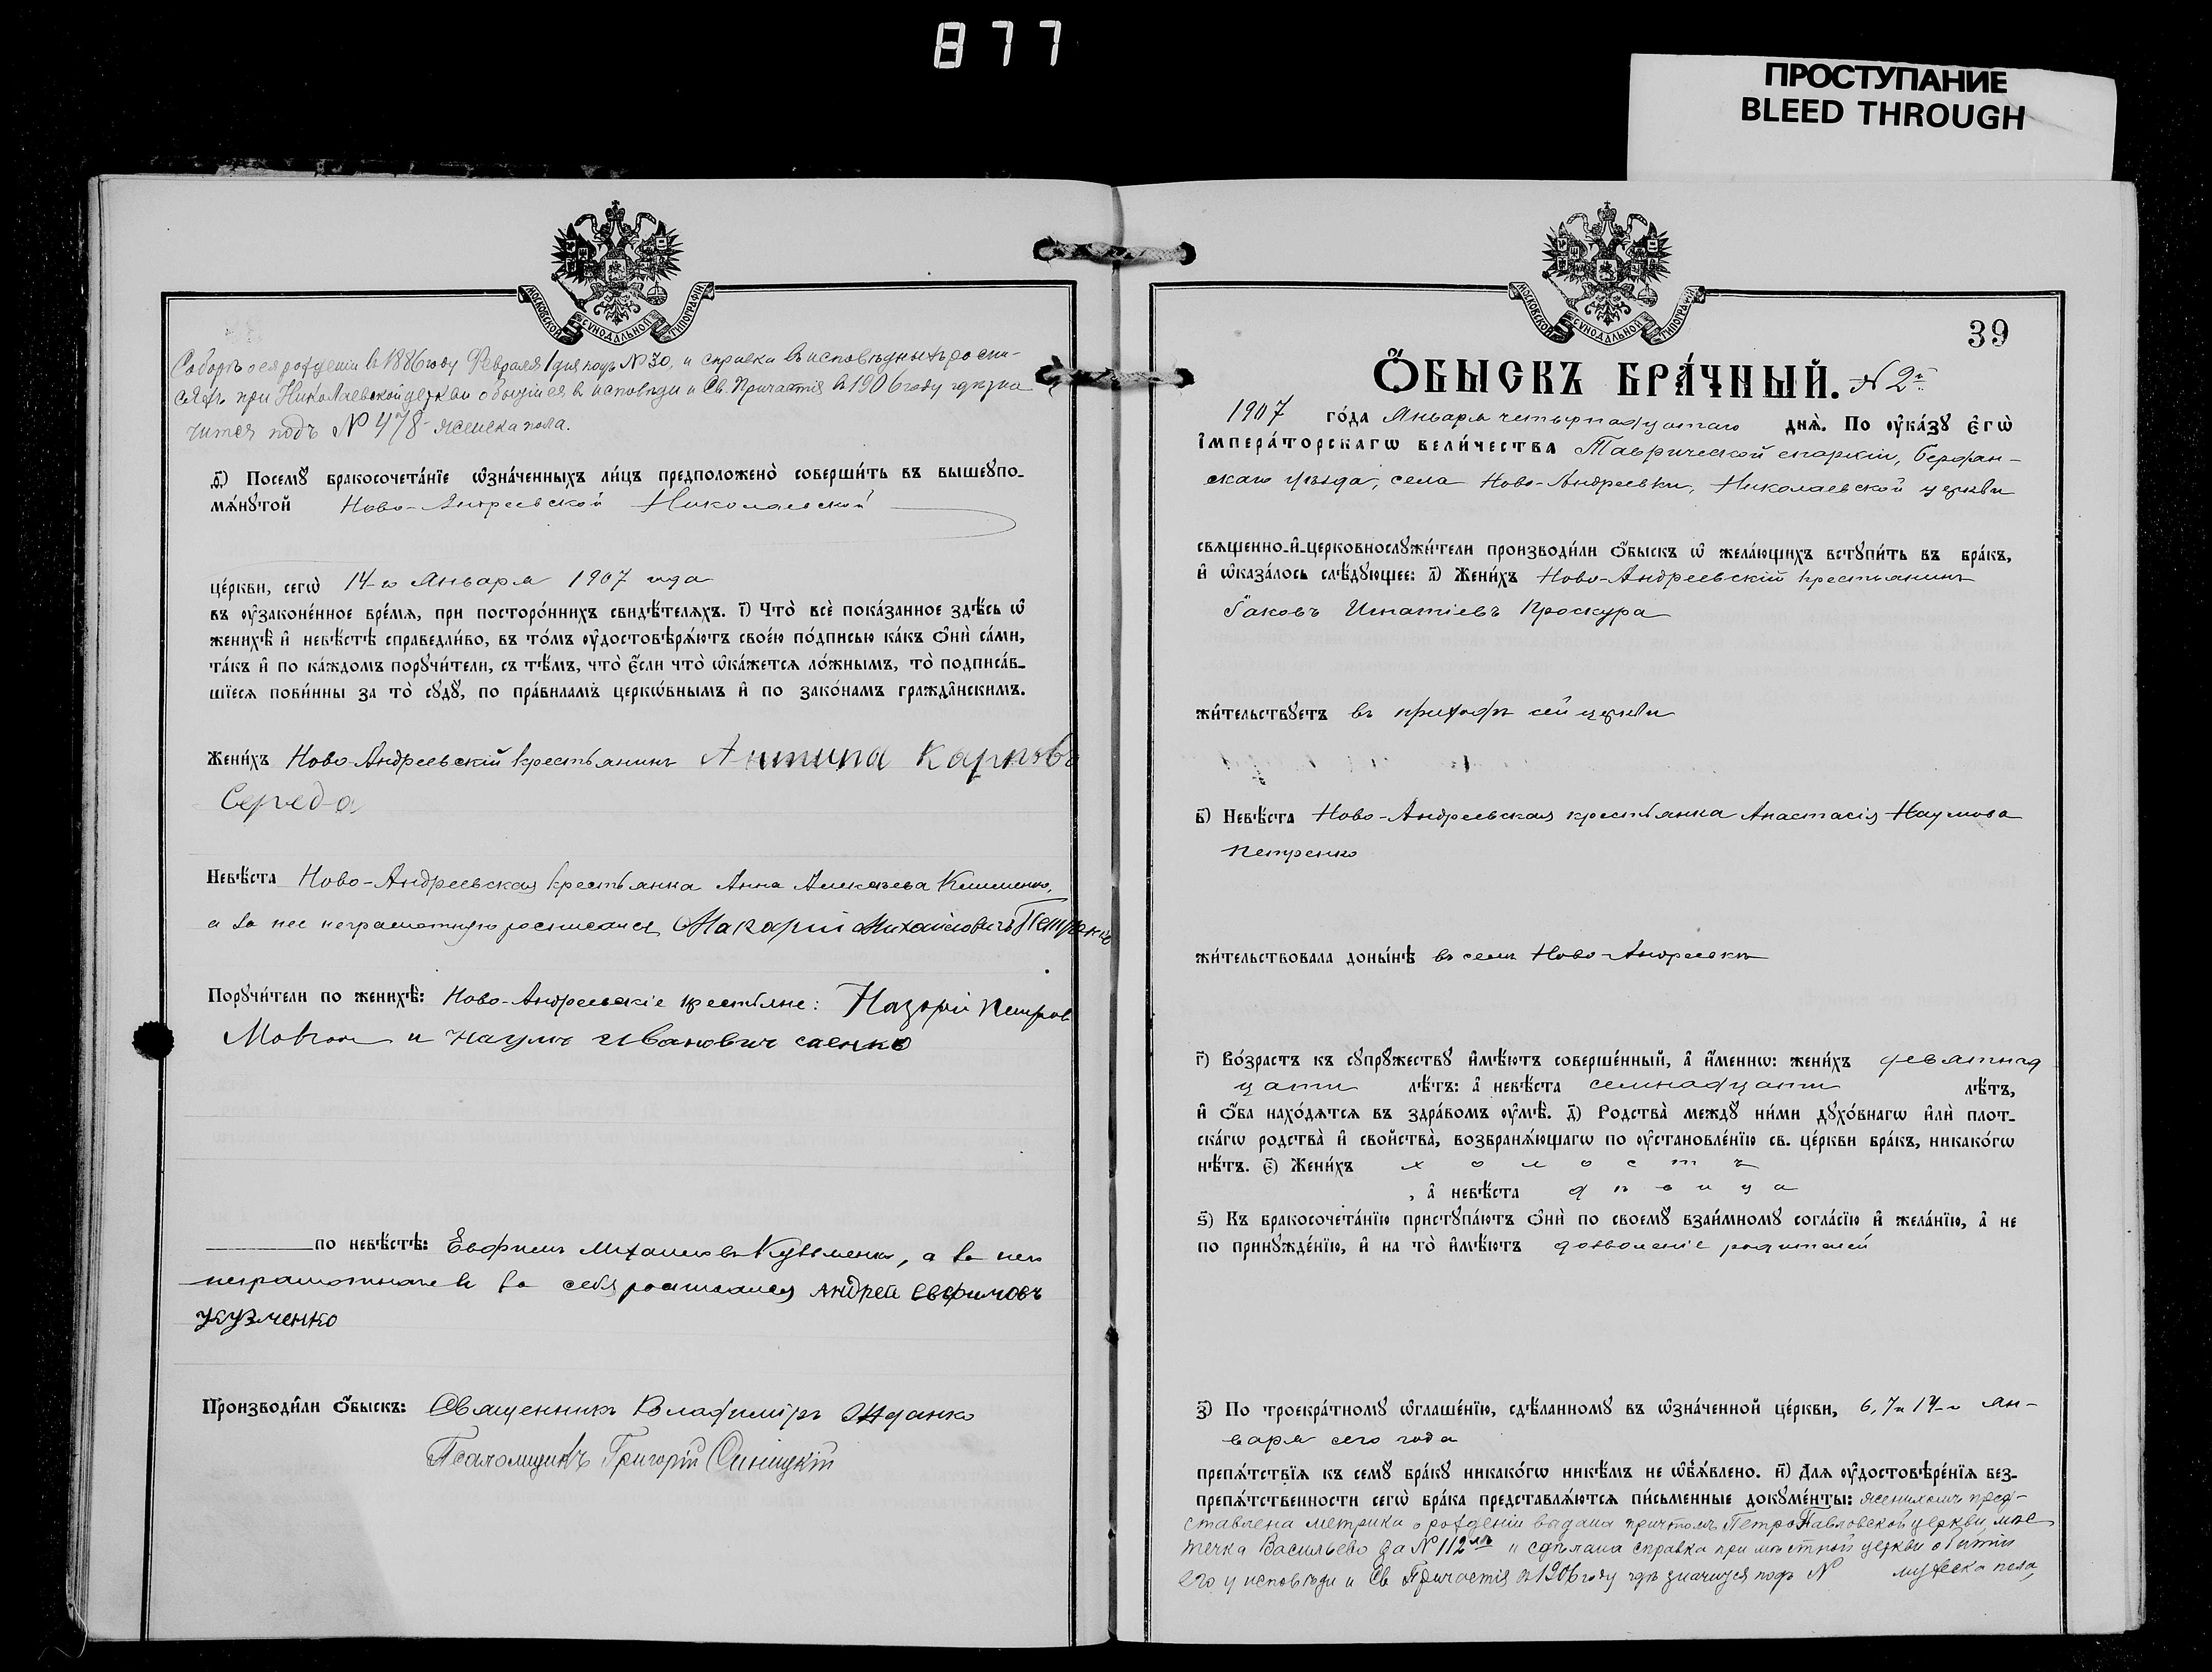 877
ПРОСТУПАНИЕ
BLEED THROUGH
МОСКОВСКОЙ СУНОДАЛЬНОЙ ТИПОГРАФІИ
рожденіи в 1886 году Февраля 1 дня подъ № 30, и справка въ исповѣдныхъ роспи-
сяхъ при Николаевской церкви о бытіи ея в исповѣди и Св. Причастія в 1906 году гдѣ зна
чится подъ № 478 женска пола.
д҃) Посемꙋ̀ бракосочета́нїе ѡ҆зна́ченныхъ ли́цъ предположено̀ соверши́ть въ вышеꙋпо-
мѧ́нꙋтой Ново-Андреевской Николаевской
це́ркви, сегѡ̀ 14-го Января 1907 года
въ ᲂу҆зако́ненное вре́мѧ, при посторо́ннихъ свидѣ́телѧхъ. і҃) Что̀ всѐ пока́занное здѣ́сь ѡ҆
женихѣ̀ и҆ невѣ́стѣ справедли́во, въ то́мъ ᲂу҆достовѣрѧ́ютъ свое́ю по́дписью ка́къ ѻ҆нѝ са́ми,
та́къ и҆ по ка́ждомъ порꙋчи́тели, съ тѣ́мъ, что̀ є҆́сли что̀ ѡ҆ка́жетсѧ ло́жнымъ, то̀ подписа́в-
шїесѧ пови́нны за то̀ сꙋдꙋ̀, по пра́виламъ церкѡ́внымъ и҆ по зако́намъ гражда́нскимъ.
Жени́хъ Ново-Андреевскій крестьянинъ Антипа Карповъ
Середа
Невѣ́ста Ново-Андреевская крестьянка Анна Алексѣева
а за нее неграмотную росписался Макарій Михайловичъ Петренко
Порꙋчи́тели по женихѣ̀: Ново-Андреевскіе крестьяне: Назарій Петров
Мовчан и Наумъ Ивановичъ Саенко
по невѣ́стѣ: Евфимъ Михайловъ Кузьменко, а за него
неграмотнаго и за себя росписался Андрей Евфимовъ
Кузменко
Производи́ли ѻ҆́быскъ: Священникъ Владиміръ Жданко
Псаломщикъ Григорій Синицкій
МОСКОВСКОЙ СУНОДАЛЬНОЙ ТИПОГРАФІИ
39
Ѻ҆́БЫСКЪ БРА́ЧНЫЙ. № 2й
1907 го́да Января четырнадцатаго днѧ̀. По ᲂу҆ка́зꙋ є҆гѡ̀
і҆мпера́торскагѡ вели́чества Таврической епархіи, Бердян-
скаго уѣзда, села Ново-Андреевки, Николаевской церкви
свѧщенно-и҆-церковнослꙋжи́тели производи́ли ѻ҆́быскъ ѡ҆ жела́ющихъ встꙋпи́ть въ бра́къ,
и҆ ѡ҆каза́лось слѣ́дꙋющее: а҃) Жени́хъ Ново-Андреевскій крестьянинъ
Іаковъ Игнатіевъ Проскура
жи́тельствꙋетъ въ приходѣ сей церкви
в҃) Невѣ́ста Ново-Андреевская крестьянка Анастасія Наумова
Петренко
жи́тельствовала доны́нѣ въ селѣ Ново-Андреевкѣ
г҃) Во́зрастъ къ сꙋпрꙋ́жествꙋ и҆мѣ́ютъ соверше́нный, а҆ и҆́меннѡ: жени́хъ девятнад
цати лѣ́тъ: а҆ невѣ́ста семнадцати лѣ́тъ,
и҆ ѻ҆́ба нахо́дѧтсѧ въ здра́вомъ ᲂу҆мѣ̀. д҃) Родства̀ междꙋ̀ ни́ми дꙋхо́внагѡ и҆лѝ плот-
ска́гѡ родства̀ и҆ свойства̀, возбранѧ́ющагѡ по ᲂу҆становле́нїю св. це́ркви бра́къ, никако́гѡ
нѣ́тъ. є҃) Жени́хъ холостъ
, а҆ невѣ́ста дѣвица
ѕ҃) Къ бракосочета́нїю пристꙋпа́ютъ ѻ҆нѝ по своемꙋ̀ взаи́мномꙋ согла́сїю и҆ жела́нїю, а҆ не
по принꙋжде́нїю, и҆ на то̀ и҆мѣ́ютъ дозволеніе родителей
з҃) По троекра́тномꙋ ѡ҆глаше́нїю, сдѣ́ланномꙋ въ ѡ҆зна́ченной це́ркви, 6, 7 и 14-го Ян-
варя сего года
препѧ́тствїѧ къ семꙋ̀ бра́кꙋ никако́гѡ никѣ́мъ не ѡ҆б̾ѧ́влено. и҃) Длѧ ᲂу҆достовѣре́нїѧ без-
препѧ́тственности сегѡ̀ бра́ка представлѧ́ютсѧ пи́сьменные докꙋме́нты: женихомъ пред-
ставлена метрика о рожденіи выдана причтомъ Петро Павловской церкви, мѣс
течка Васильево за № 112 и сдѣлана справка при мѣстной церкви о бытіи
его у исповѣди и Св Причастія в 1906 году гдѣ значится подъ № мужска пола,